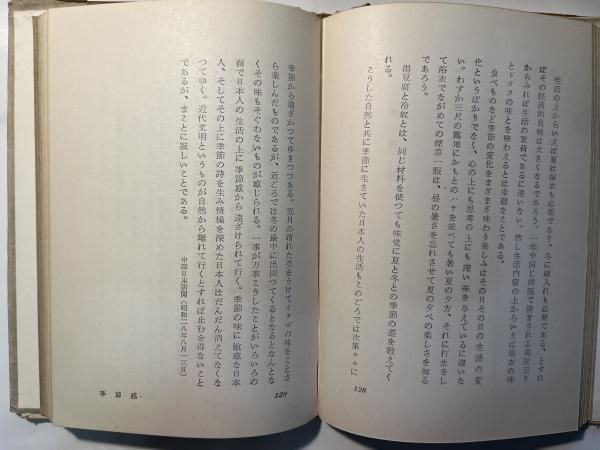 生活の上からいえば夏は浴衣も必要であり、冬は綿入れも必要である、とすれ
ばその経済的負担は大きくなるであろう。一年中同じ洋服で済まされる英国辺り
からみれば生活の重荷であるに違いない。然し生活内容の上からいえば浴衣の味
とドテラの味とを味わえるとは幸福なことである。
食べものなど季節の変化をまざまざ味わう楽しみはその日その日の生活の変
化というばかりでなく、心の上にも思考の上にも深い味を与えているに違いな
い。わずか三尺の露地におもとのハチを並べても暑い夏の夕方、それに打水をし
て浴衣でながめての煙草一服は、昼の暑さを忘れさせて夏の夕べの楽しさを知る
であろう。
湯豆腐と冷奴とは、同じ材料を使つても味覚に夏と冬との季節の差を教えてく
れる。
こうした自然と共に季節に生きていた日本人の生活もこのごろでは次第々々に
128
季節から遠ざかつてゆきつつある。五月の晴れた空をうけてイチゴの味をことさ
ら楽しんだものであるが、近ごろでは冬の最中に出回つてくるとなるとなんとな
くその味もそぐわないものが感じられる。一事が万事こうしたことがいろいろの
面で日本人の生活の上に季節感から遠ざけられて行く。季節の味に敏感な日本
人、そしてその上に季節の詩を生み情操を深めた日本人はだんだん消えてなくな
つてゆく。近代文明というものが自然から離れて行くとすれば止むを得ないこと
であるが、まことに寂しいことである。
中部日本新聞(昭和二八年八月一三日)
129
季節感